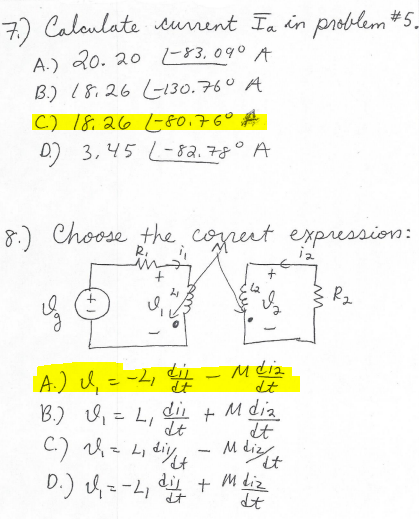 7.) Calculate current Īa in problem #5.
A.) 20.20 ∠-83.09° A
B.) 18.26 ∠-130.76° A
C.) 18.26 ∠-80.76° A
D.) 3.45 ∠-82.78° A
8.) Choose the correct expression:
R1 i1 M i2
+ + +
vg v1 L1 L2 v2 R2
- - -
A.) v1 = -L1 di1/dt - M di2/dt
B.) v1 = L1 di1/dt + M di2/dt
C.) v1 = L1 di1/dt - M di2/dt
D.) v1 = -L1 di1/dt + M di2/dt